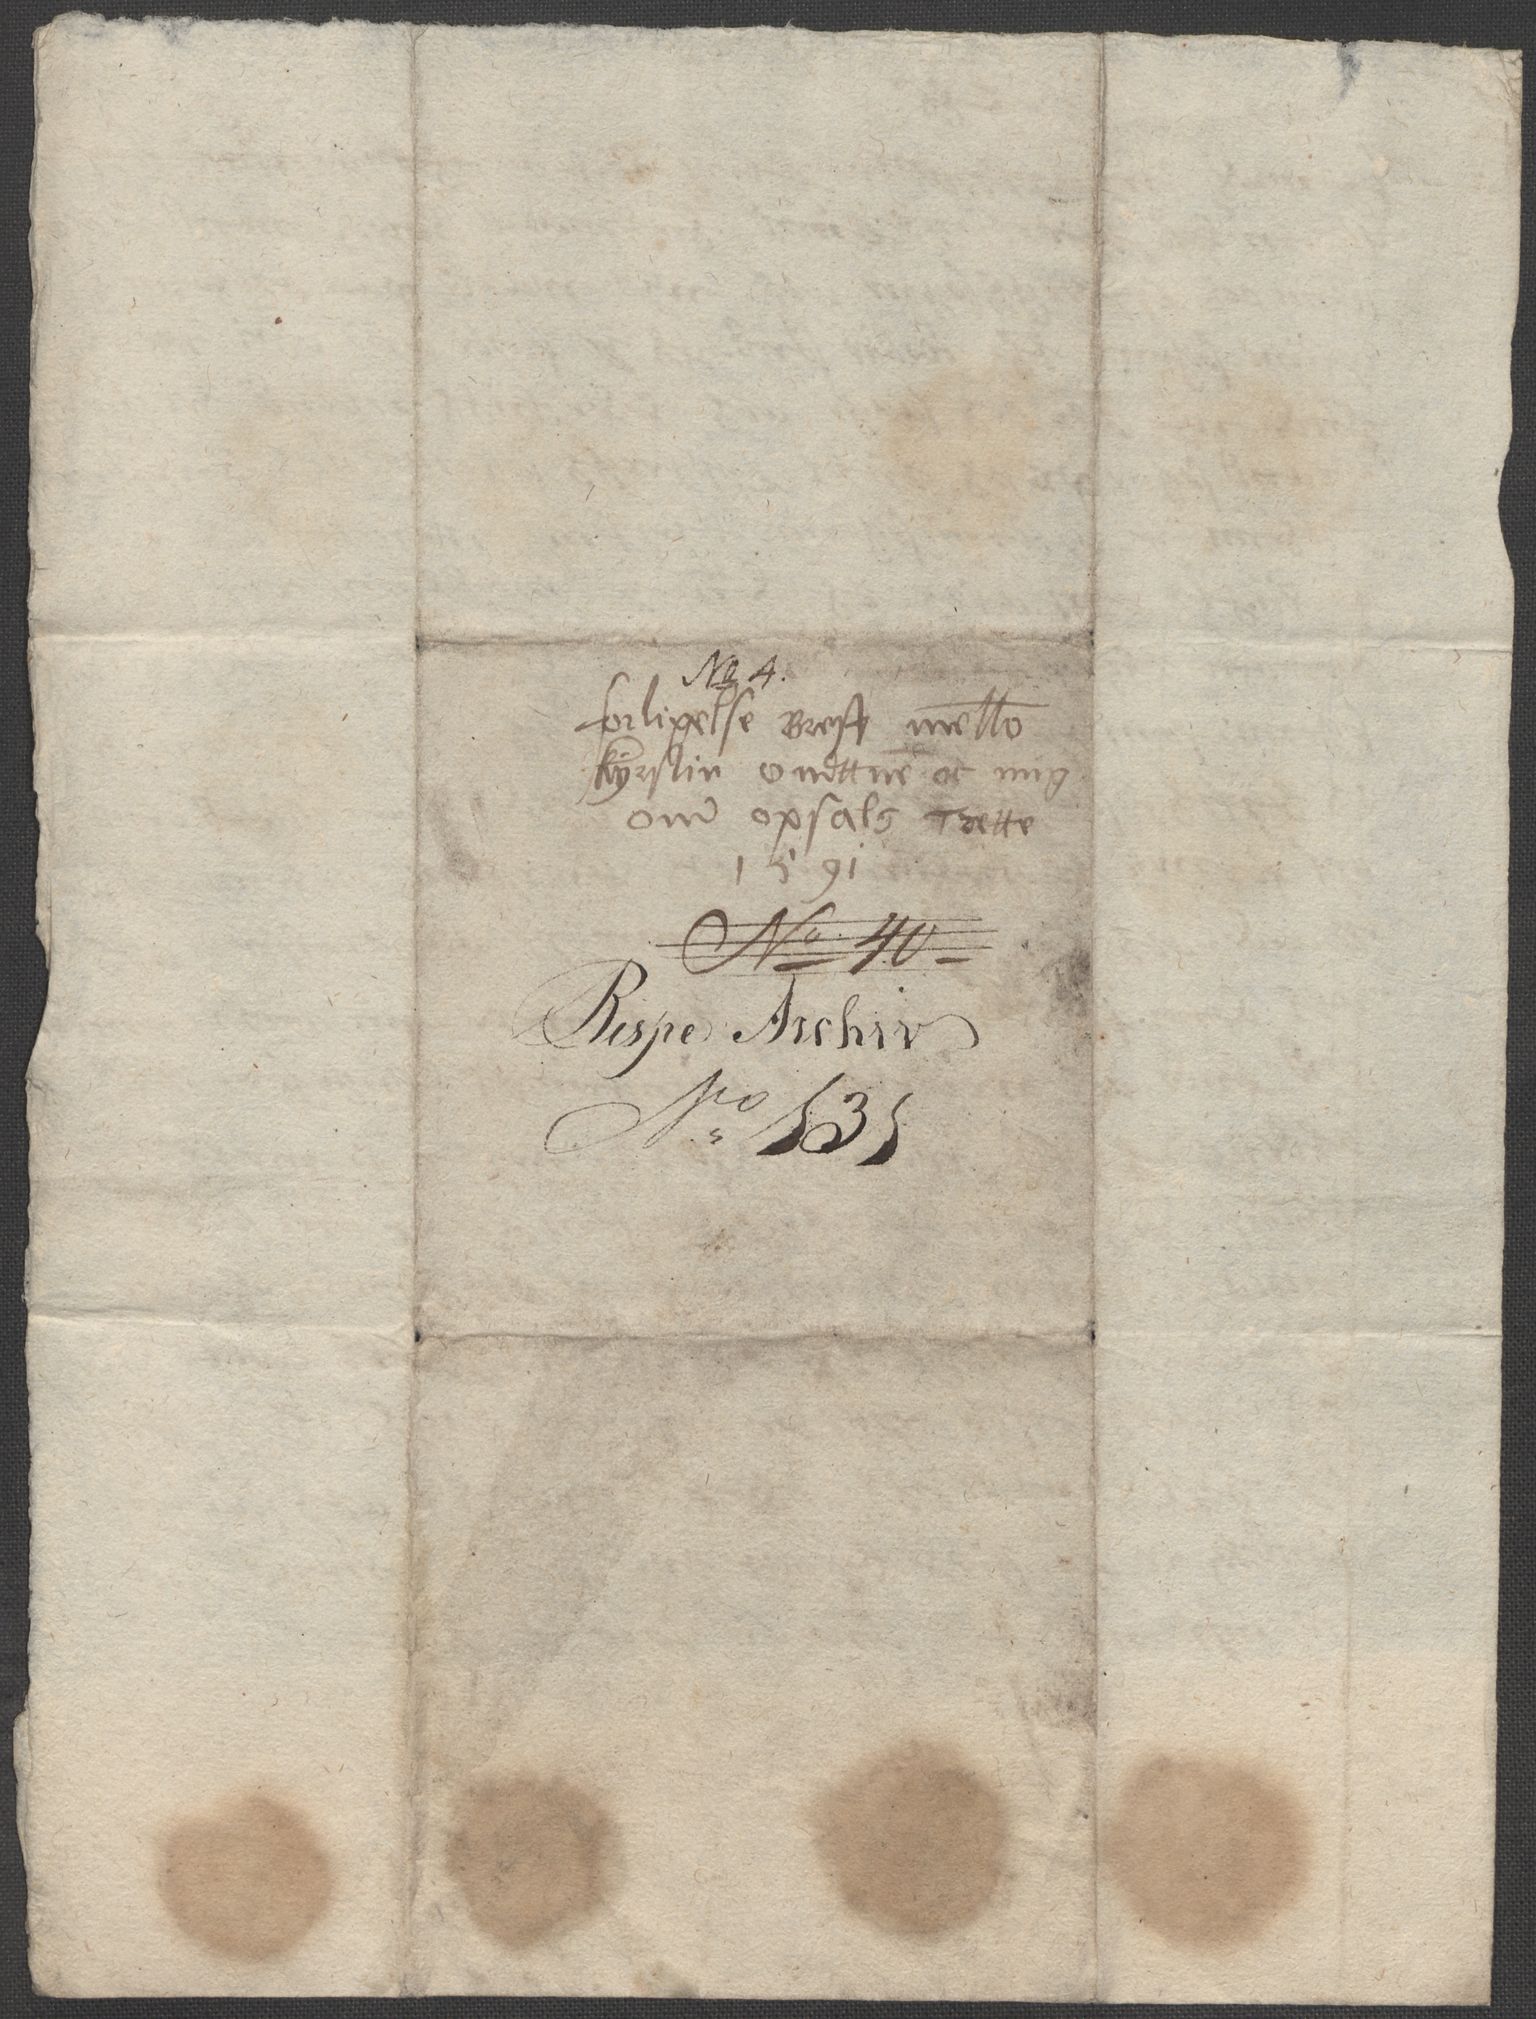 No 4.
forligelse Breff mello
kÿrstin omttne oc mig
om opsals Trette
1591
No. 40
Rispe Archiv
No 535